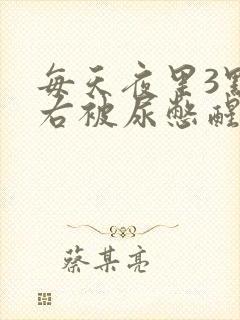 每天夜里3點
右被尿憋醒
蔡某亮